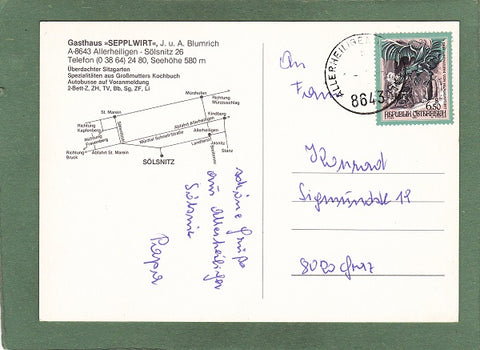 Gasthaus »SEPPLWIRT«, J. u. A. Blumrich
A-8643 Allerheiligen - Sölsnitz 26
Telefon (0 38 64) 24 80, Seehöhe 580 m
Überdachter Sitzgarten
Spezialitäten aus Großmutters Kochbuch
Autobusse auf Voranmeldung
2-Bett-Z, ZH, TV, Bb, Sg, ZF, Li
Mürzhofen
Richtung
Mürzzuschlag
St. Marein
Kindberg
Richtung
Kapfenberg
Abfahrt Allerheiligen
Allerheiligen
Richtung
Mürztal Schnellstraße
Landhaus
Jasnitz
Stanz
Richtung
Bruck
Abfahrt St. Marein
SÖLSNITZ
ALLERHEILIGEN
8643
6.50
REPUBLIK ÖSTERREICH
An
Frau
Konrad
Sigmundstr 12
8020 Graz
schöne Grüße
aus Allerheiligen
Sölsnitz
Papa